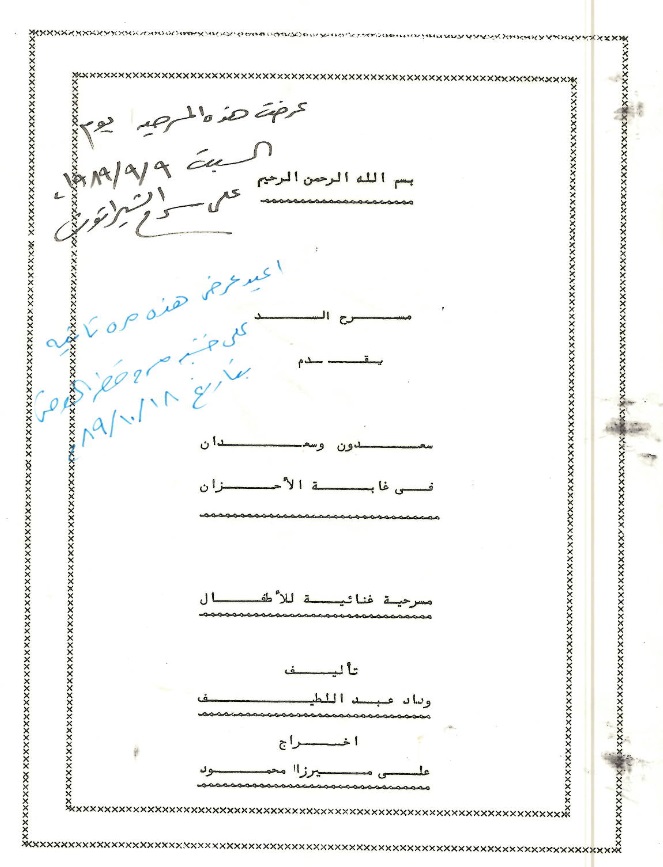 عرضت هذه المسرحيه يوم
السبت ١٩٨٩/٩/٩
على مسرح الشيراتون
بسم الله الرحمن الرحيم
اعيد عرض هذه مره ثانيه
على خشبة مسرح قطر الوطنى
بتاريخ ٨٩/١٠/١٨
مسرح السد
يقدم
سعدون وسعدان
فى غابة الأحزان
مسرحية غنائية للأطفال
تأليف
وداد عبد اللطيف
اخراج
على ميرزاا محمود